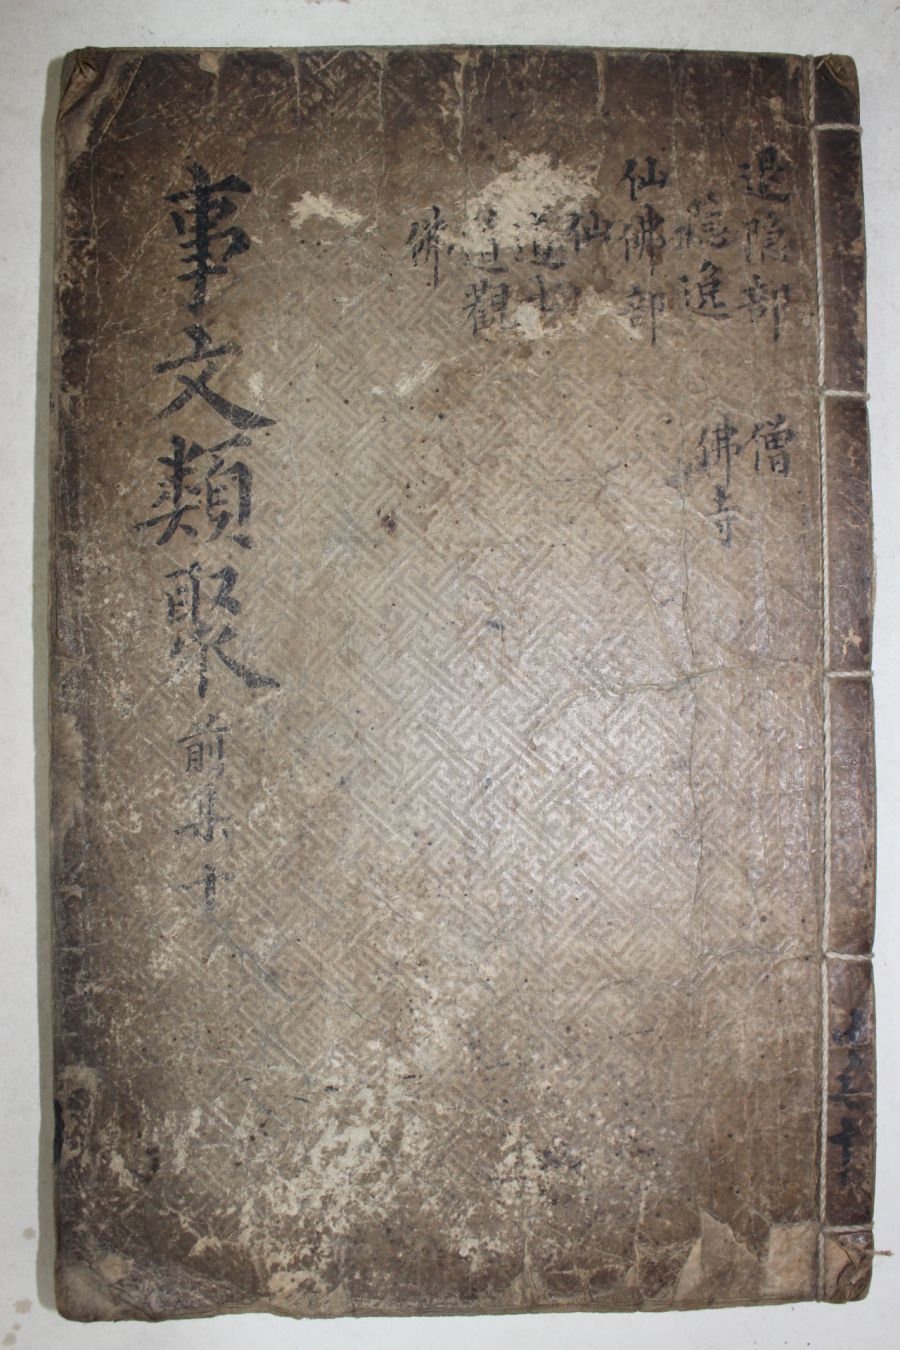 退隐部
隐逸
仙佛部
仙
道士
道觀
佛
僧
佛寺
事文類聚 前集十